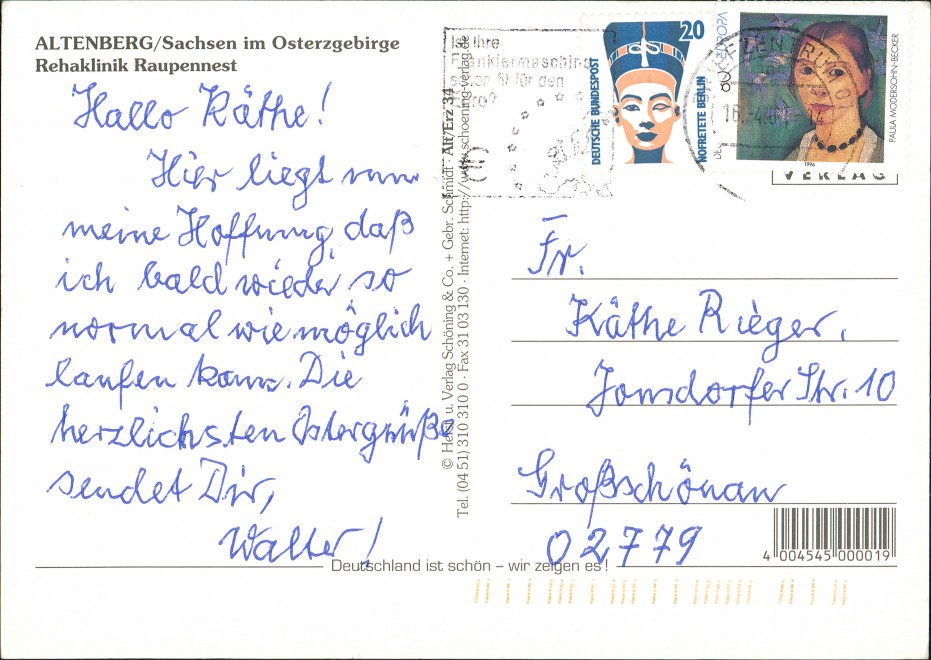 ALTENBERG/Sachsen im Osterzgebirge
Rehaklinik Raupennest
Hallo Käthe!
Hier liegt nun
meine Hoffnung, daß
ich bald wieder so
normal wie möglich
laufen kann. Die
herzlichsten Ostergrüße
sendet Dir,
Walter!
© Herst. u. Verlag Schöning & Co. + Gebr. Schmidt · Alt/Erz 34
Tel. (04 51) 310 310 0 · Fax 31 03 130 · Internet: http://www.schoening-verlag.de
Ist Ihre
Frankiermaschine
schon fit für den
Euro?
20
DEUTSCHE BUNDESPOST
NOFRETETE BERLIN
EUROPA
80
PAULA MODERSOHN-BECKER
1996
BRIEFZENTRUM 01
VERLAG
Fr.
Käthe Rieger,
Jonsdorfer Str. 10
Großschönau
02779
4 004545 000019
Deutschland ist schön – wir zeigen es!